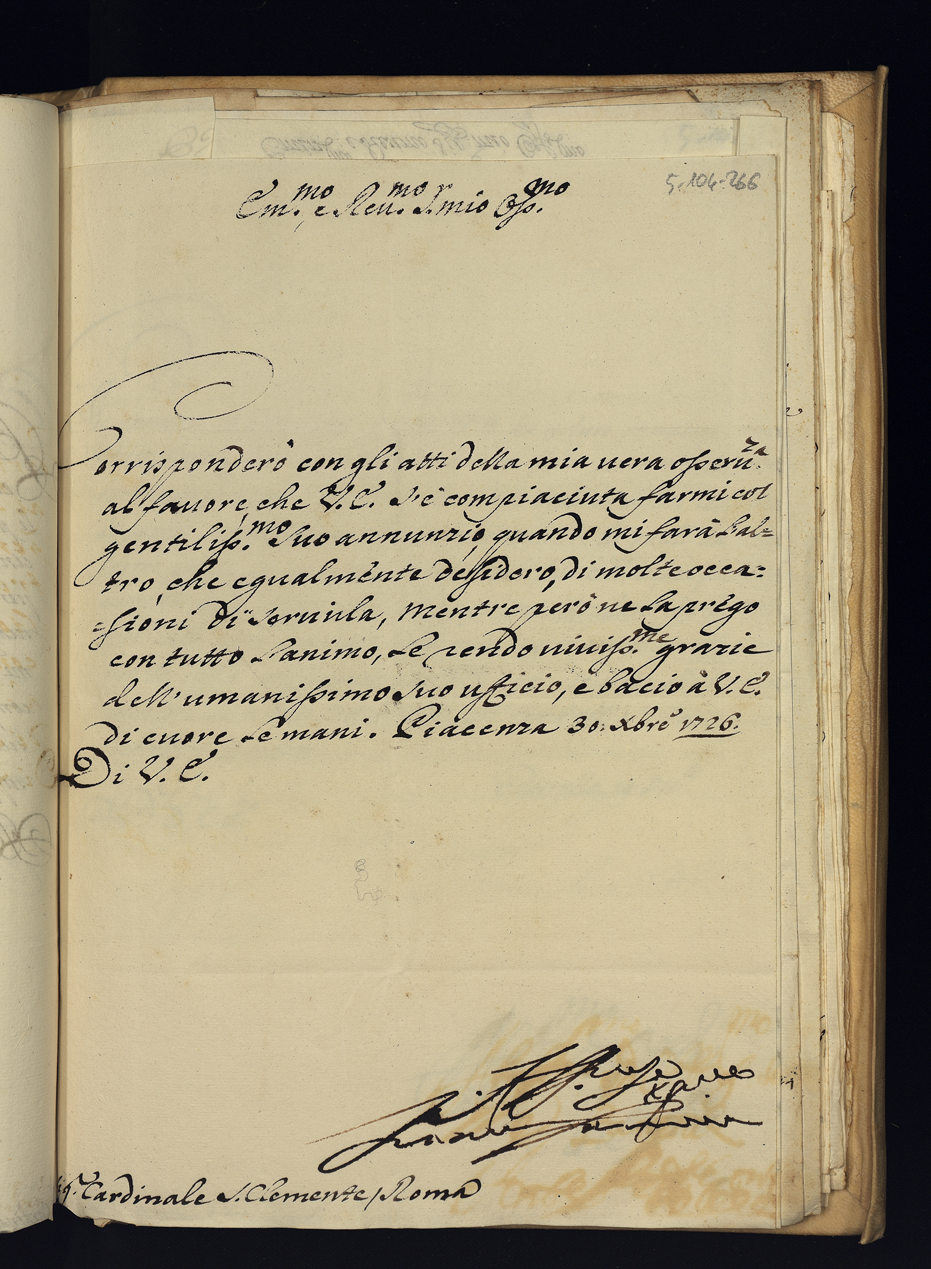 5-104-266
Em.mo e Reu.mo S.r mio Oss.mo
Corrisponderò con gli atti della mia uera osseru.za
al fauore, che V.E. s'è compiaciuta farmi col
gentiliss.mo Suo annunzio, quando mi farà l'al=
tro, che egualmente desidero, di molte occa=
=sioni di seruirla, mentre però ne la prego
con tutto l'animo, le rendo uiuiss.me grazie
dell'umanissimo suo ufficio, e bacio à V.E.
di cuore le mani. Piacenza 30. Xbre 1726.
Di V.E.
Cardinale S. Clemente / Roma